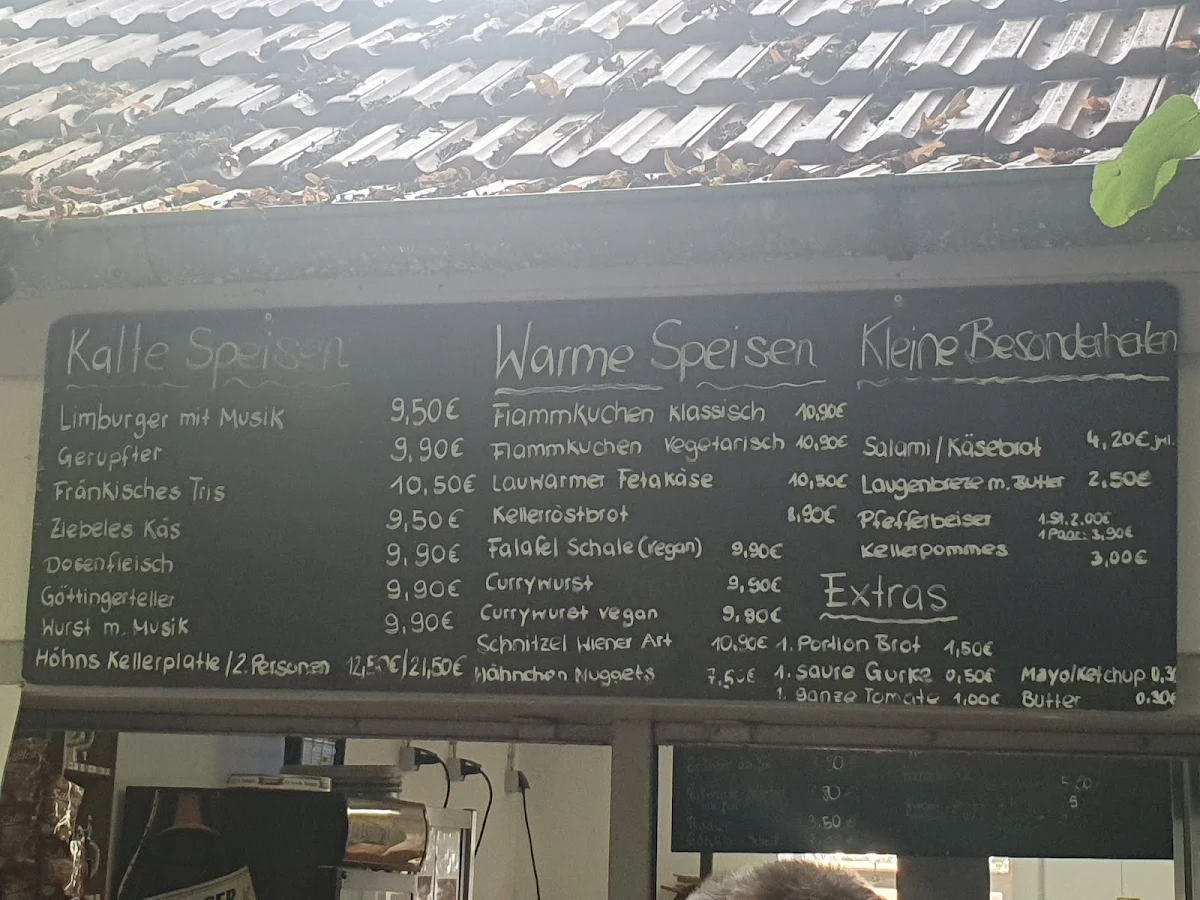 Kalte Speisen
Limburger mit Musik 9,50€
Gerupfter 9,90€
Fränkisches Tris 10,50€
Ziebeles Käs 9,50€
Dosenfleisch 9,90€
Göttingerteller 9,90€
Wurst m. Musik 9,90€
Höhns Kellerplatte/2.Personen 12,50€/21,50€
Warme Speisen
Flammkuchen Klassisch 10,90€
Flammkuchen Vegetarisch 10,90€
Lauwarmer Fetakäse 10,50€
Kellerröstbrot 8,90€
Falafel Schale (vegan) 9,90€
Currywurst 9,90€
Currywurst vegan 9,90€
Schnitzel Wiener Art 10,90€
Hähnchen Nuggets
Kleine Besonderheiten
Salami/Käsebrot 4,20€
Laugenbreze m. Butter 2,50€
Pfefferbeiser 1.St. 2,00€
1 Paar: 3,90€
Kellerpommes 3,00€
Extras
1. Portion Brot 1,50€
1. saure Gurke 0,50€ Mayo/Ketchup
1. ganze Tomate 1,00€ Butter 0,30€
3,50